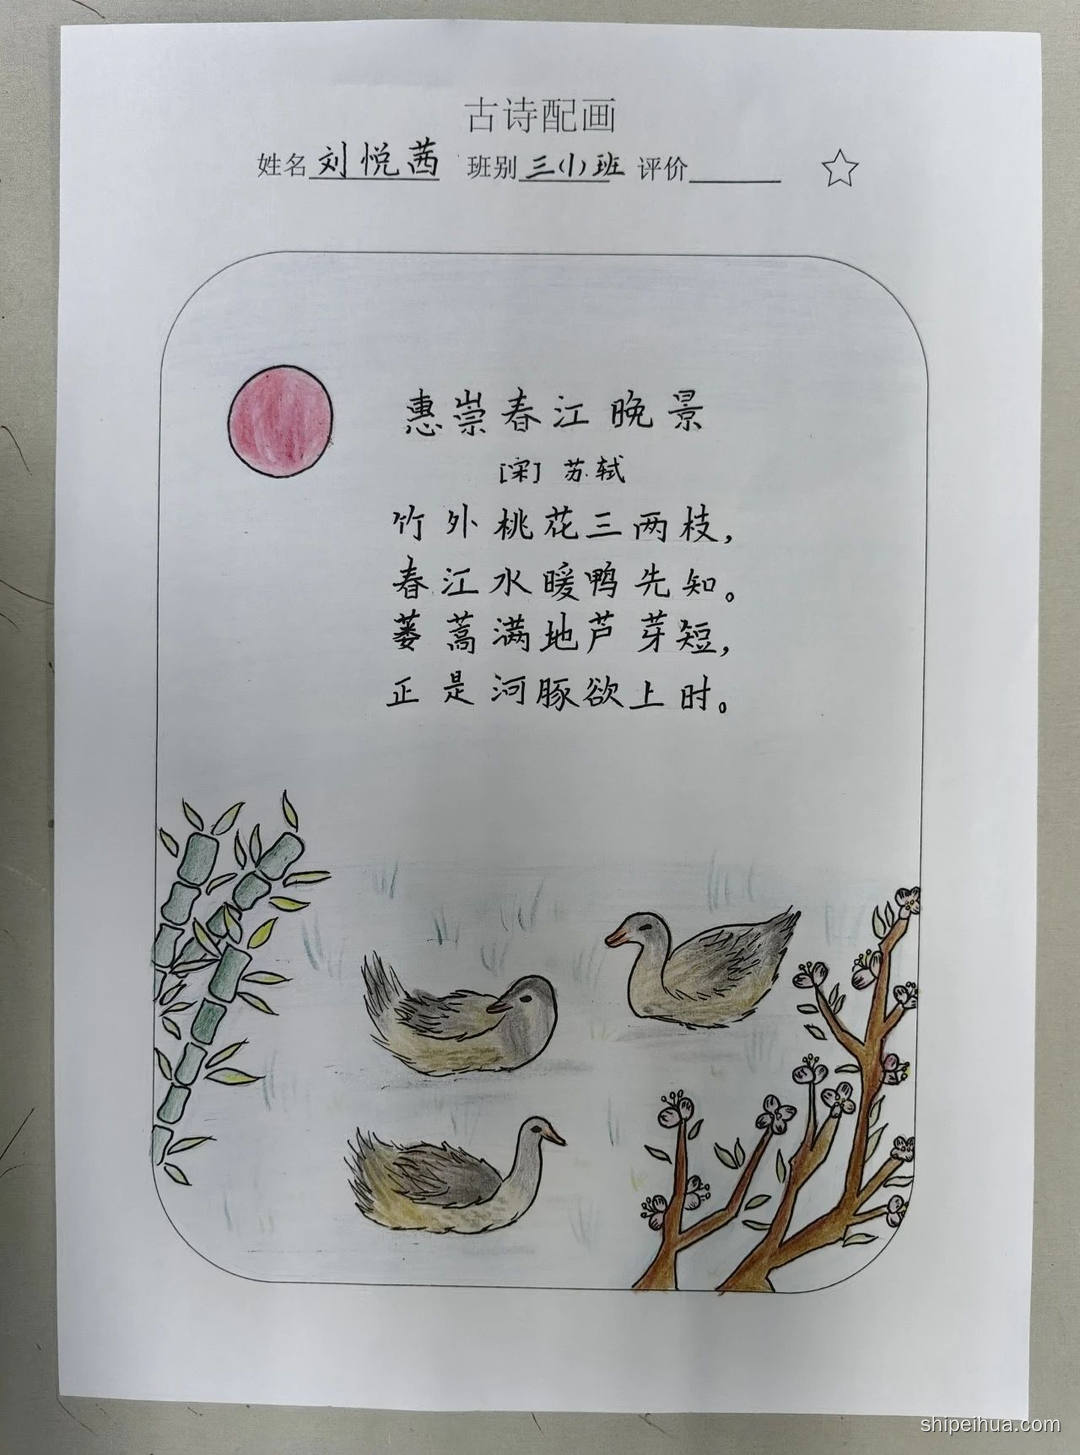 古诗配画
姓名刘悦茜 班别三(1)班 评价
惠崇春江晚景
[宋] 苏轼
竹外桃花三两枝，
春江水暖鸭先知。
蒌蒿满地芦芽短，
正是河豚欲上时。
shipeihua.com